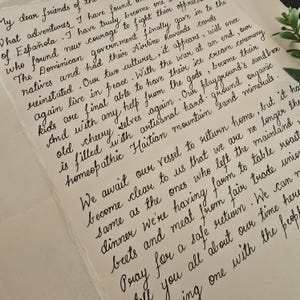 My dear friends of the
What adventures I have found
of Española. I have truly become one
who found new courage to fight their oppressors
The Dominican government finally gave in to the
natives and had their Airline Rewards cards
reinstated. Our two cultures, it appears, will once
again live in peace. With the war at an end, some
kids are final able to have their ice cream money.
And with any help from the gods, become their
old, cherry selves again. Our playground's sandbox
is filled with artisanal hand ground organic
homeopathic Haitian mountain sand minerals.
We await our vessel to return home but it has
become clear to us that we are no longer the
same as the ones who left the mainland.
dinner we're having farm to table roasted
beets and meat from fair trade
Pray for a safe return. We can
tell you all about our time here
ing one with the peop